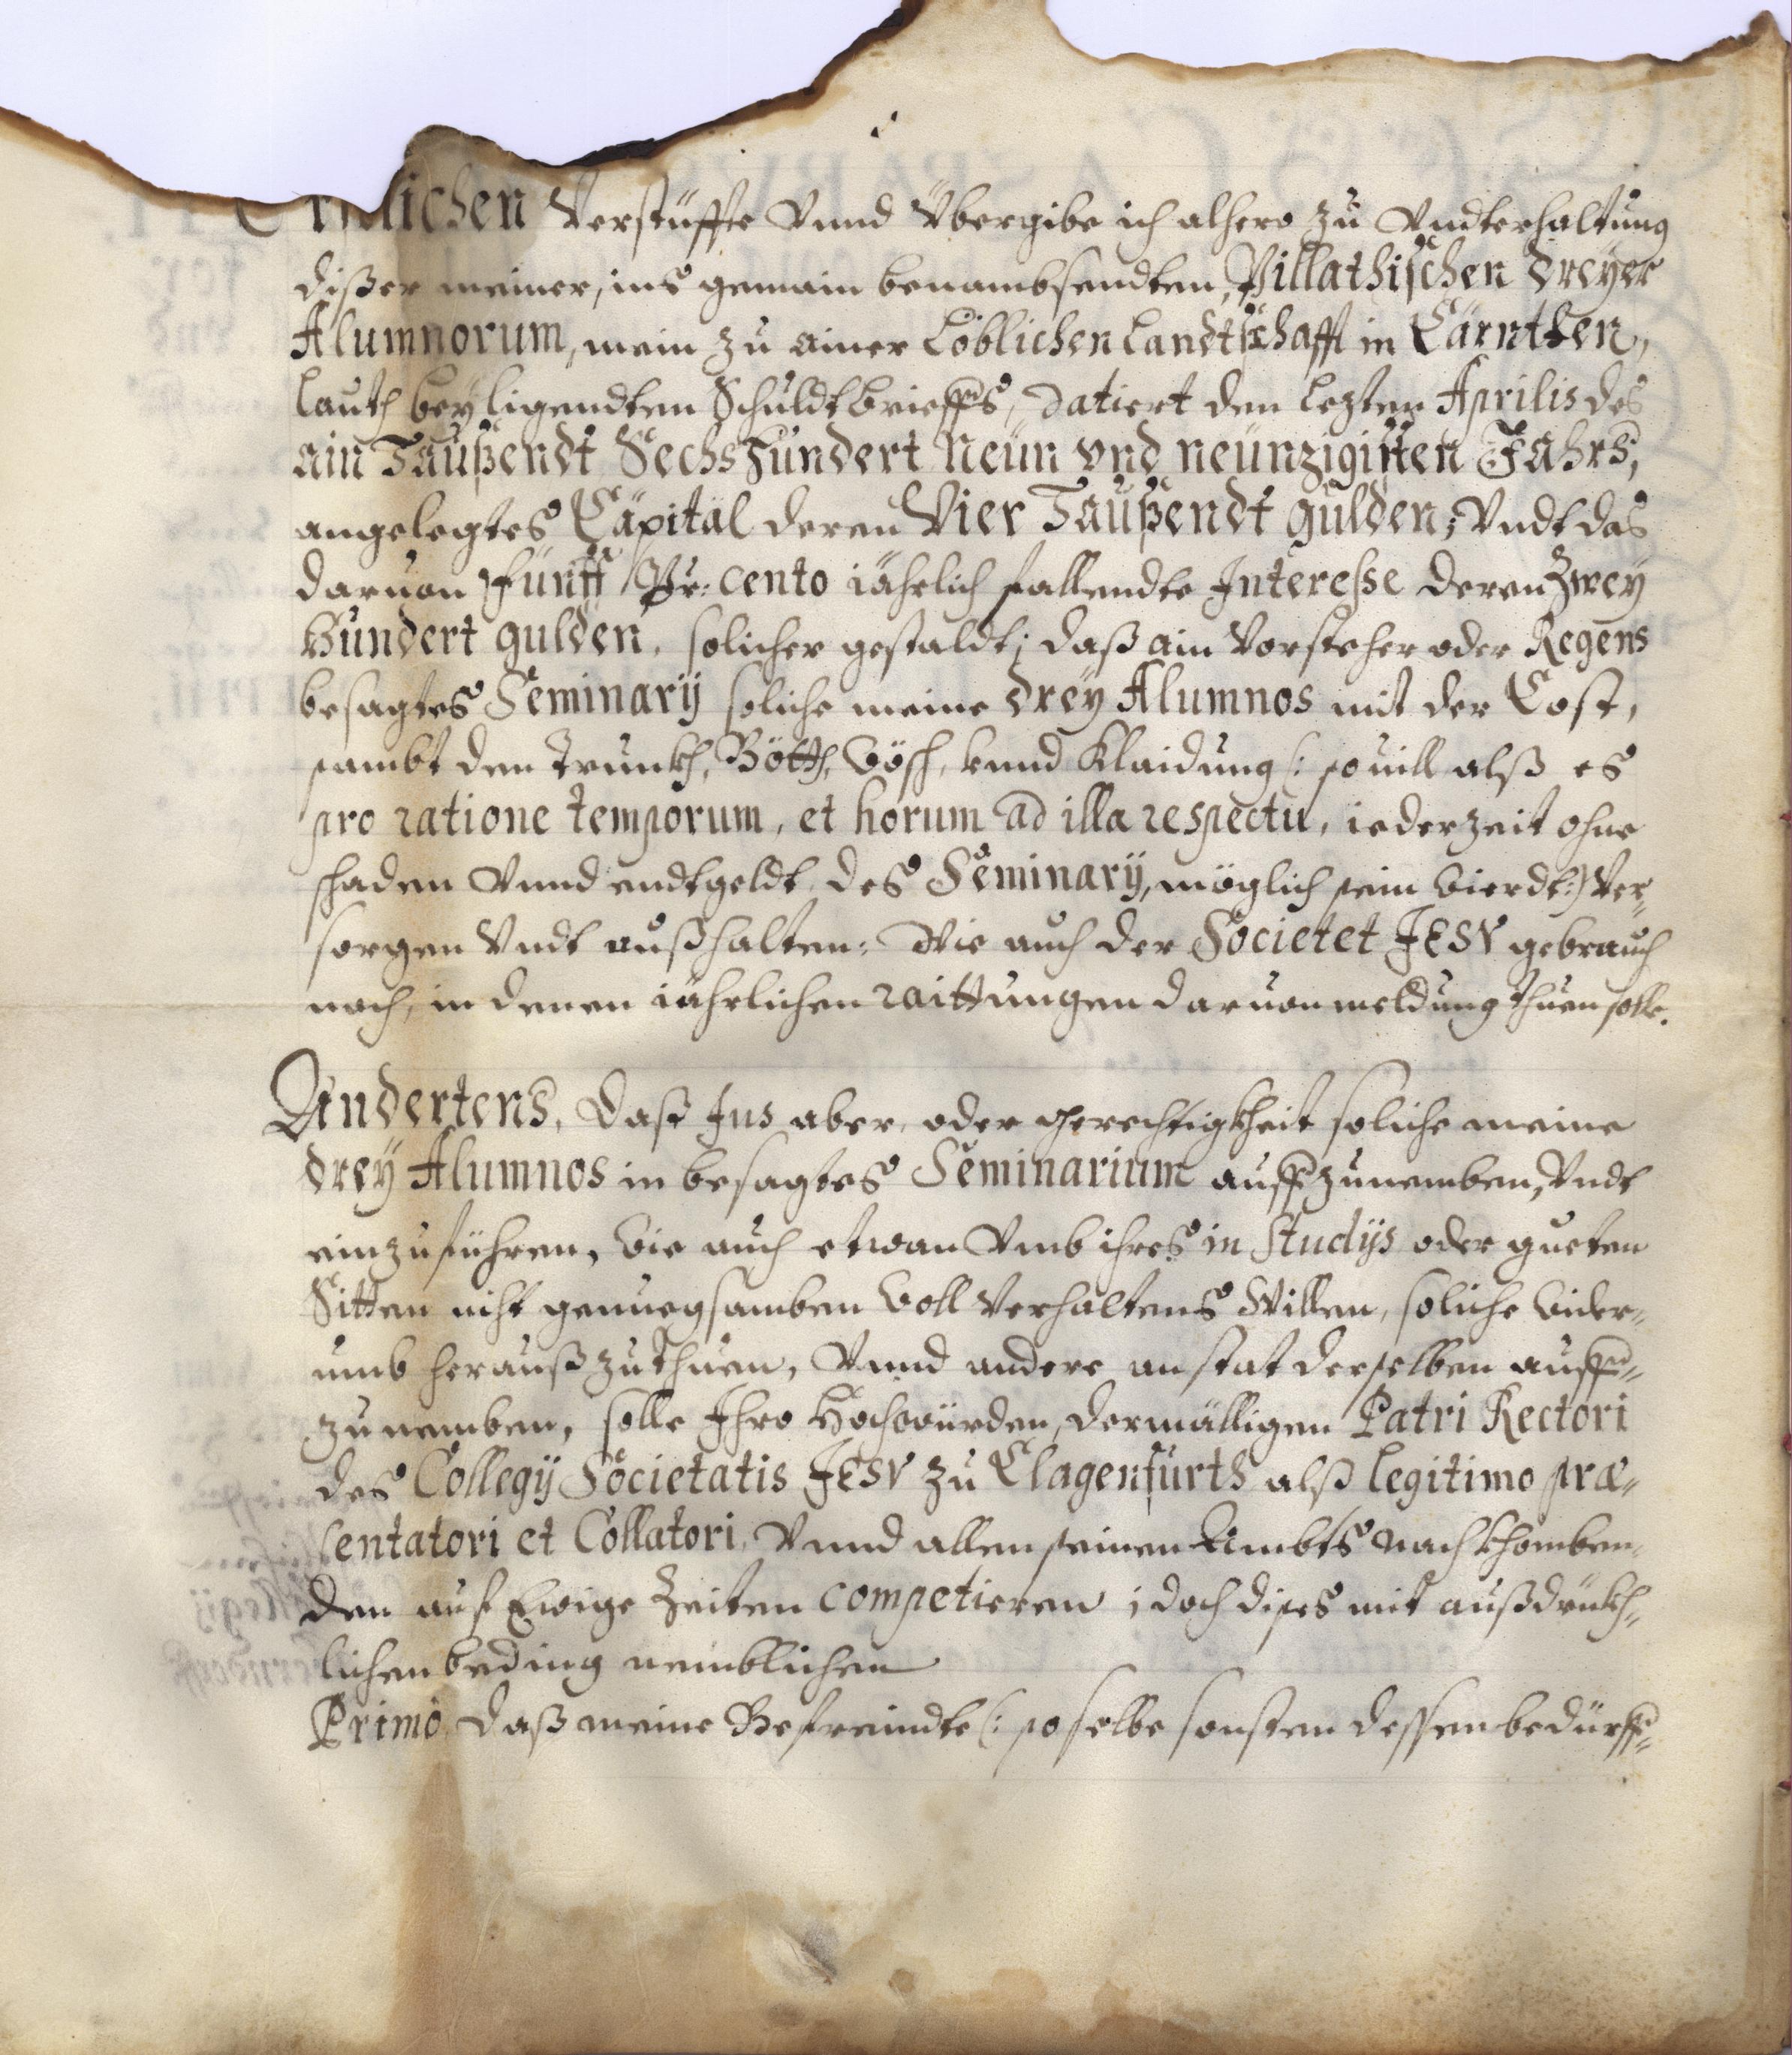 Erstlichen Verstüffte Vnnd Vbergibe ich alhero zu Vndterhaltung
dißer meiner, ins gemain benambsendten, Villathischen dreyer
Alumnorum, mein zu ainer Löblichen Landtschafft in Cärnthen,
lauth beyligendten Schuldtbrieffs, datiert den lezten Aprilis des
ain Taußendt Sechs Hundert Neün vnd neünzigisten Jahrs,
angelegtes Capital deren Vier Taußendt gulden; Vndt das
daruon Fünff Pr: cento iährlich fallendte Interesse deren Zwey
Hundert gulden, solicher gestaldt; daß ain Vorsteher oder Regens
besagtes Seminarij soliche meine drey Alumnos mit der Cost,
sambt den Trunkh, Bötth, Wösch, vnnd Klaidung (: souill alß es
pro ratione temporum, et horum ad illa respectu, iederzeit ohne
schaden Vnnd endtgeldt des Seminarij, möglich sein wierdt:) Ver-
sorgen Vndt außhalten: Wie auch der Societet JESV gebrauch
nach, in denen iährlichen raittungen daruon meldung thuen solle.
Andertens, Daß Jus aber, oder gerechtigkheit soliche meine
drey Alumnos in besagtes Seminarium auffzunemben, Vndt
einzuführen, wie auch etwan Vmb ihres in Studijs oder gueten
Sitten niht genuegsamben Woll Verhaltens Willen, soliche wider-
umb herauß zuthuen, Vnnd andere anstat derselben auff-
zunemben, solle Ihro Hochwürden, dermälligen Patri Rectori
des Collegij Societatis JESV zu Clagenfurth alß legitimo præ-
sentatori et Collatori, Vnnd allen seinen Ambts nachkhomben-
den auf Ewige Zeiten competieren; doch dises mit außdrükh-
lichen beding nemblichen
Primò, daß meine Befreindte (: so selbe sonsten dessen bedürff-